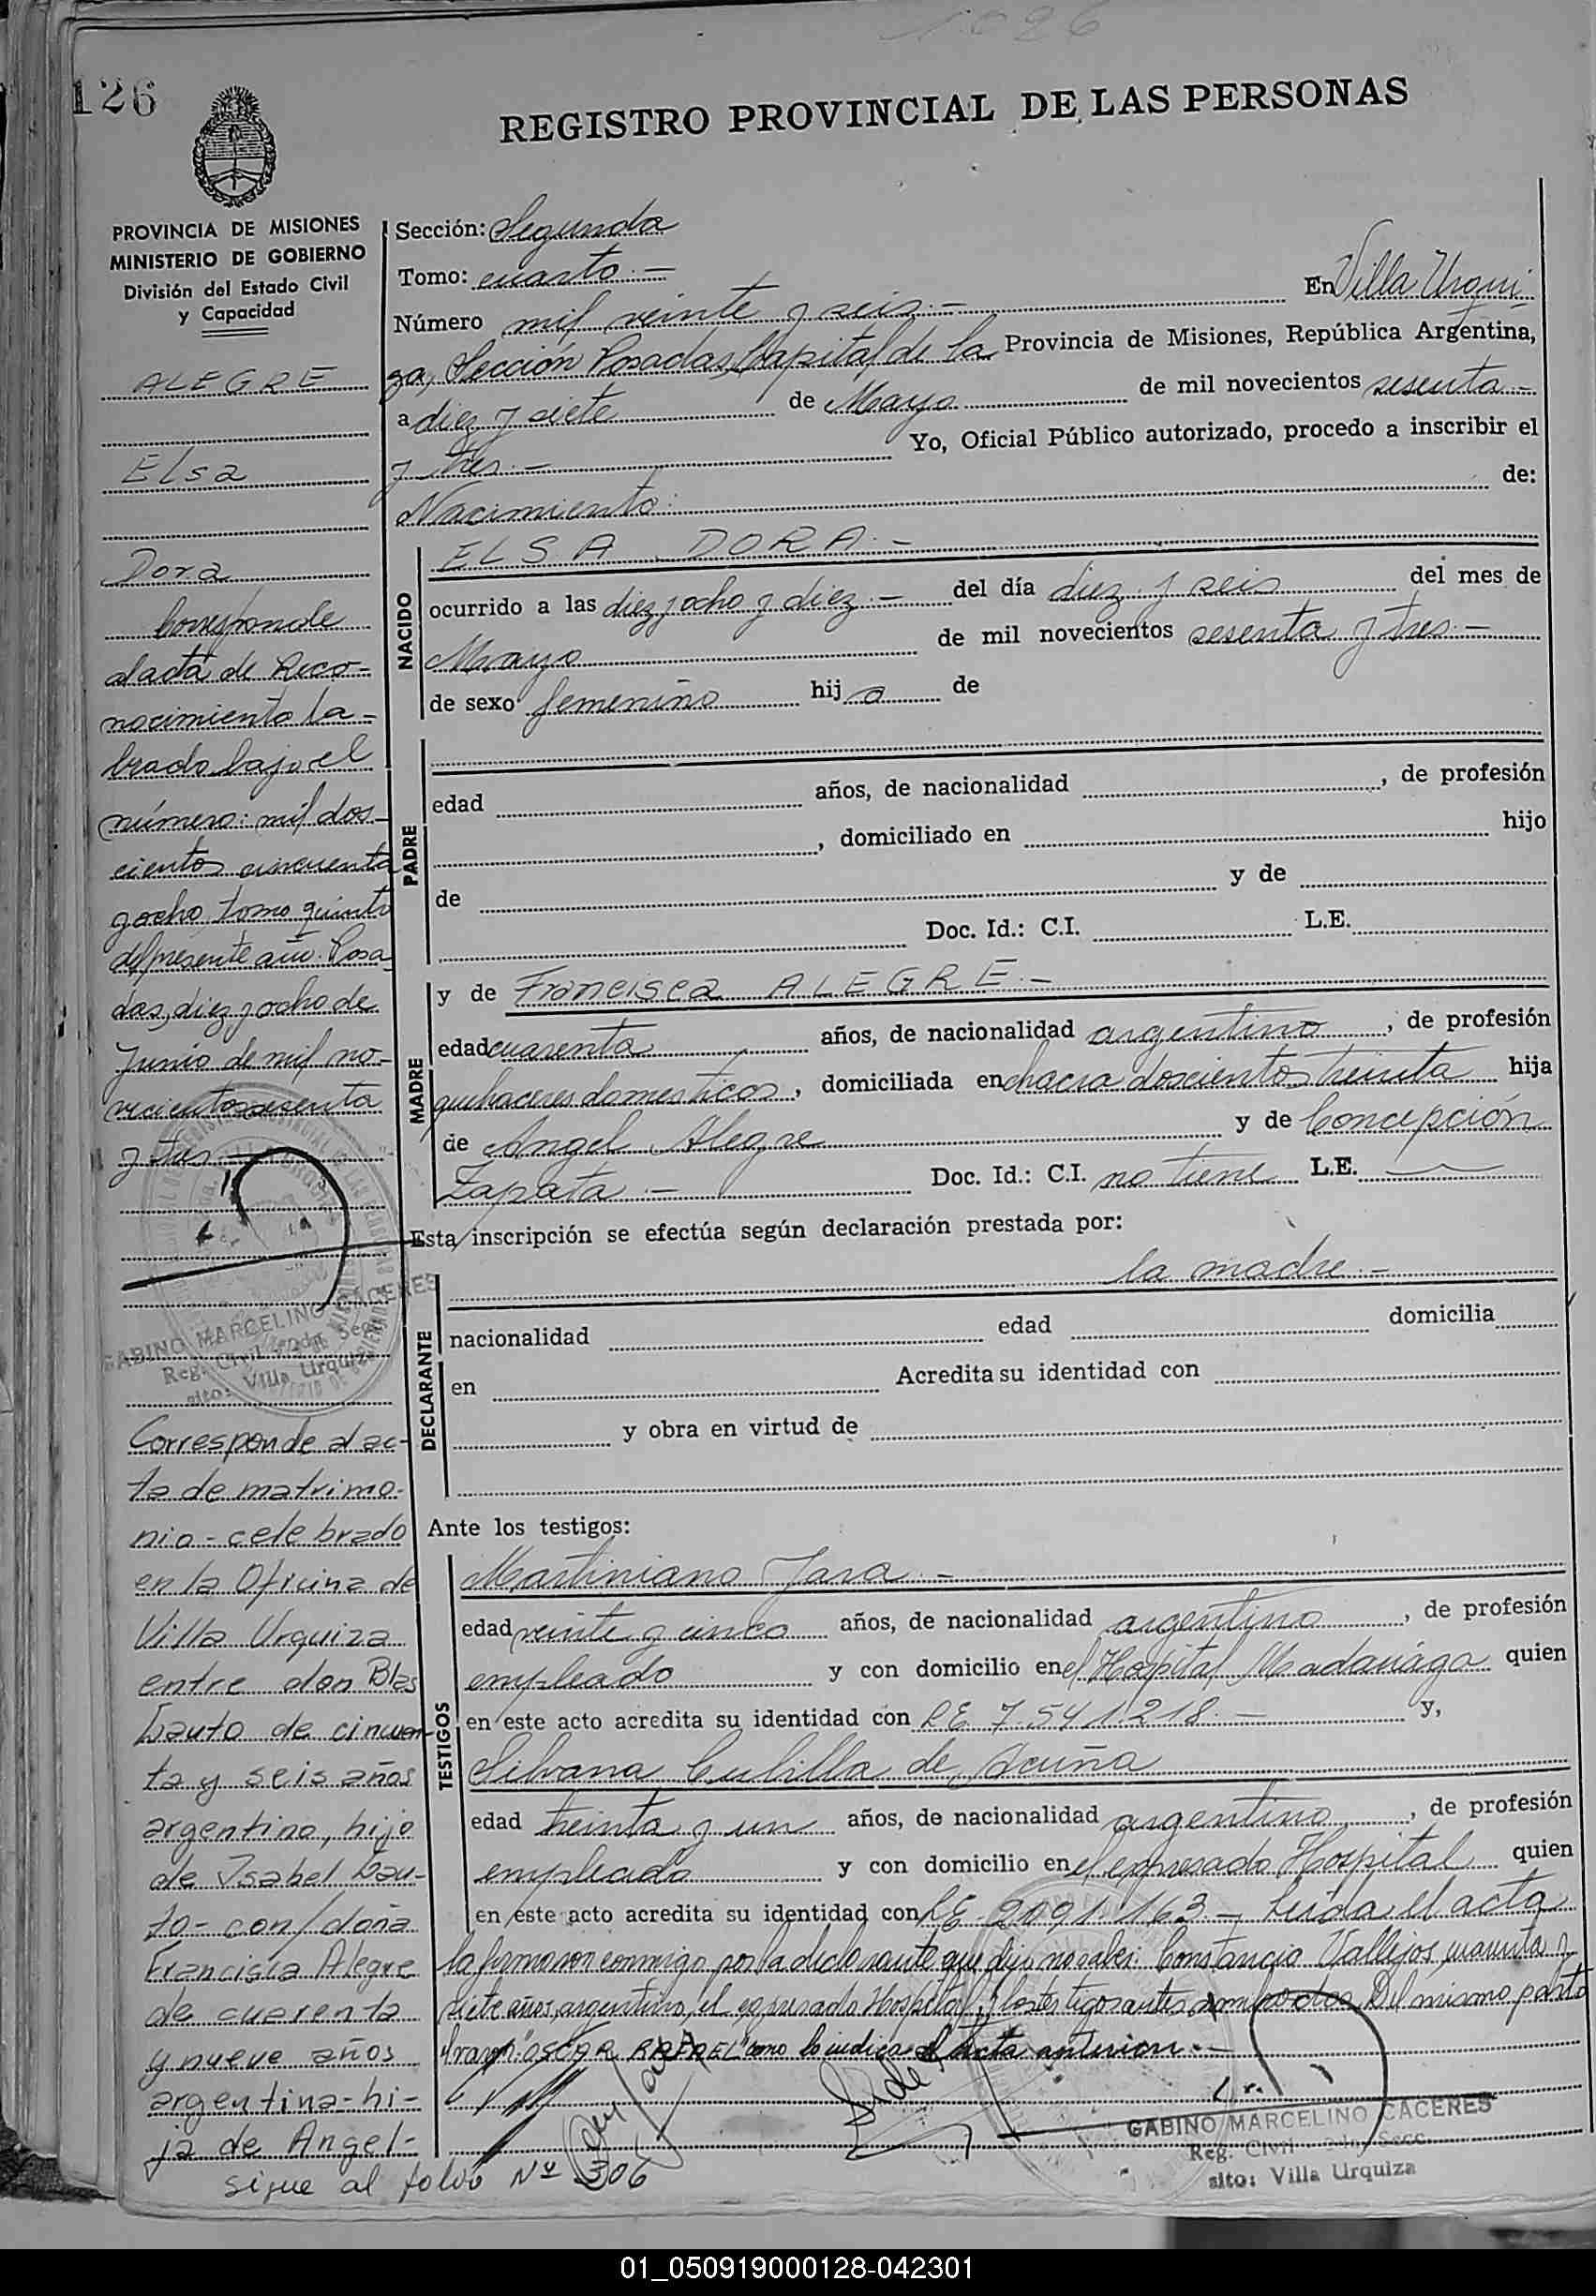 1026
126
REGISTRO PROVINCIAL DE LAS PERSONAS
PROVINCIA DE MISIONES
MINISTERIO DE GOBIERNO
División del Estado Civil
y Capacidad
ALEGRE
Elsa
Dora
Corresponde
al acta de Reco-
nocimiento la-
brado bajo el
número: mil dos-
cientos cincuenta
y ocho, tomo quinto
del presente año. Posa
das, diez y ocho de
Junio de mil no-
vecientos sesenta
y tres
GABINO MARCELINO CACERES
Reg. Civil 2da. Secc.
sito: Villa Urquiza
Corresponde al ac-
ta de matrimo-
nio - celebrado
en la Oficina de
Villa Urquiza
entre don Blas
Bauto de cincuen-
ta y seis años
argentino, hijo
de Isabel Bau-
to - con/doña
Francisca Alegre
de cuarenta
y nueve años
argentina - hi-
ja de Angel -
sigue al folio Nº 306
Sección: Segunda
Tomo: cuarto.-
Número mil veinte y seis.- En Villa Urqui
za, Sección Posadas, Capital de la Provincia de Misiones, República Argentina,
a diez y siete de Mayo de mil novecientos sesenta-
y tres.- Yo, Oficial Público autorizado, procedo a inscribir el
Nacimiento: de:
NACIDO
ELSA DORA.-
ocurrido a las diez y ocho y diez.- del día diez y seis del mes de
Mayo de mil novecientos sesenta y tres.-
de sexo femenino hija de
PADRE
edad años, de nacionalidad , de profesión
, domiciliado en hijo
de y de
Doc. Id.: C.I. L.E.
MADRE
y de Francisca ALEGRE.-
edad cuarenta años, de nacionalidad argentino, de profesión
quehaceres domesticos, domiciliada en chacra doscientos treinta hija
de Angel Alegre y de Concepción
Zapata.- Doc. Id.: C.I. no tiene L.E. —
Esta inscripción se efectúa según declaración prestada por:
la madre.-
DECLARANTE
nacionalidad edad domicilia
en Acredita su identidad con
y obra en virtud de
Ante los testigos:
TESTIGOS
Martiniano Jara -
edad veinte y cinco años, de nacionalidad argentino, de profesión
empleado y con domicilio en el Hospital Madariaga quien
en este acto acredita su identidad con LE 7.541.218.- y,
Silvana Cubilla de Acuña
edad treinta y un años, de nacionalidad argentino, de profesión
empleado y con domicilio en el expresado Hospital quien
en este acto acredita su identidad con LE 2091.163- Leída el acta
la firmaron conmigo por la declarante que dijo no saber: Constancio Vallejos, cuarenta y
siete años, argentino, el expresado Hospital, y los testigos antes nombrados. Del mismo parto
"OSCAR RAFAEL" como lo indica el acta anterior.-
GABINO MARCELINO CACERES
Reg. Civil 2da. Secc.
sito: Villa Urquiza
01_050919000128-042301